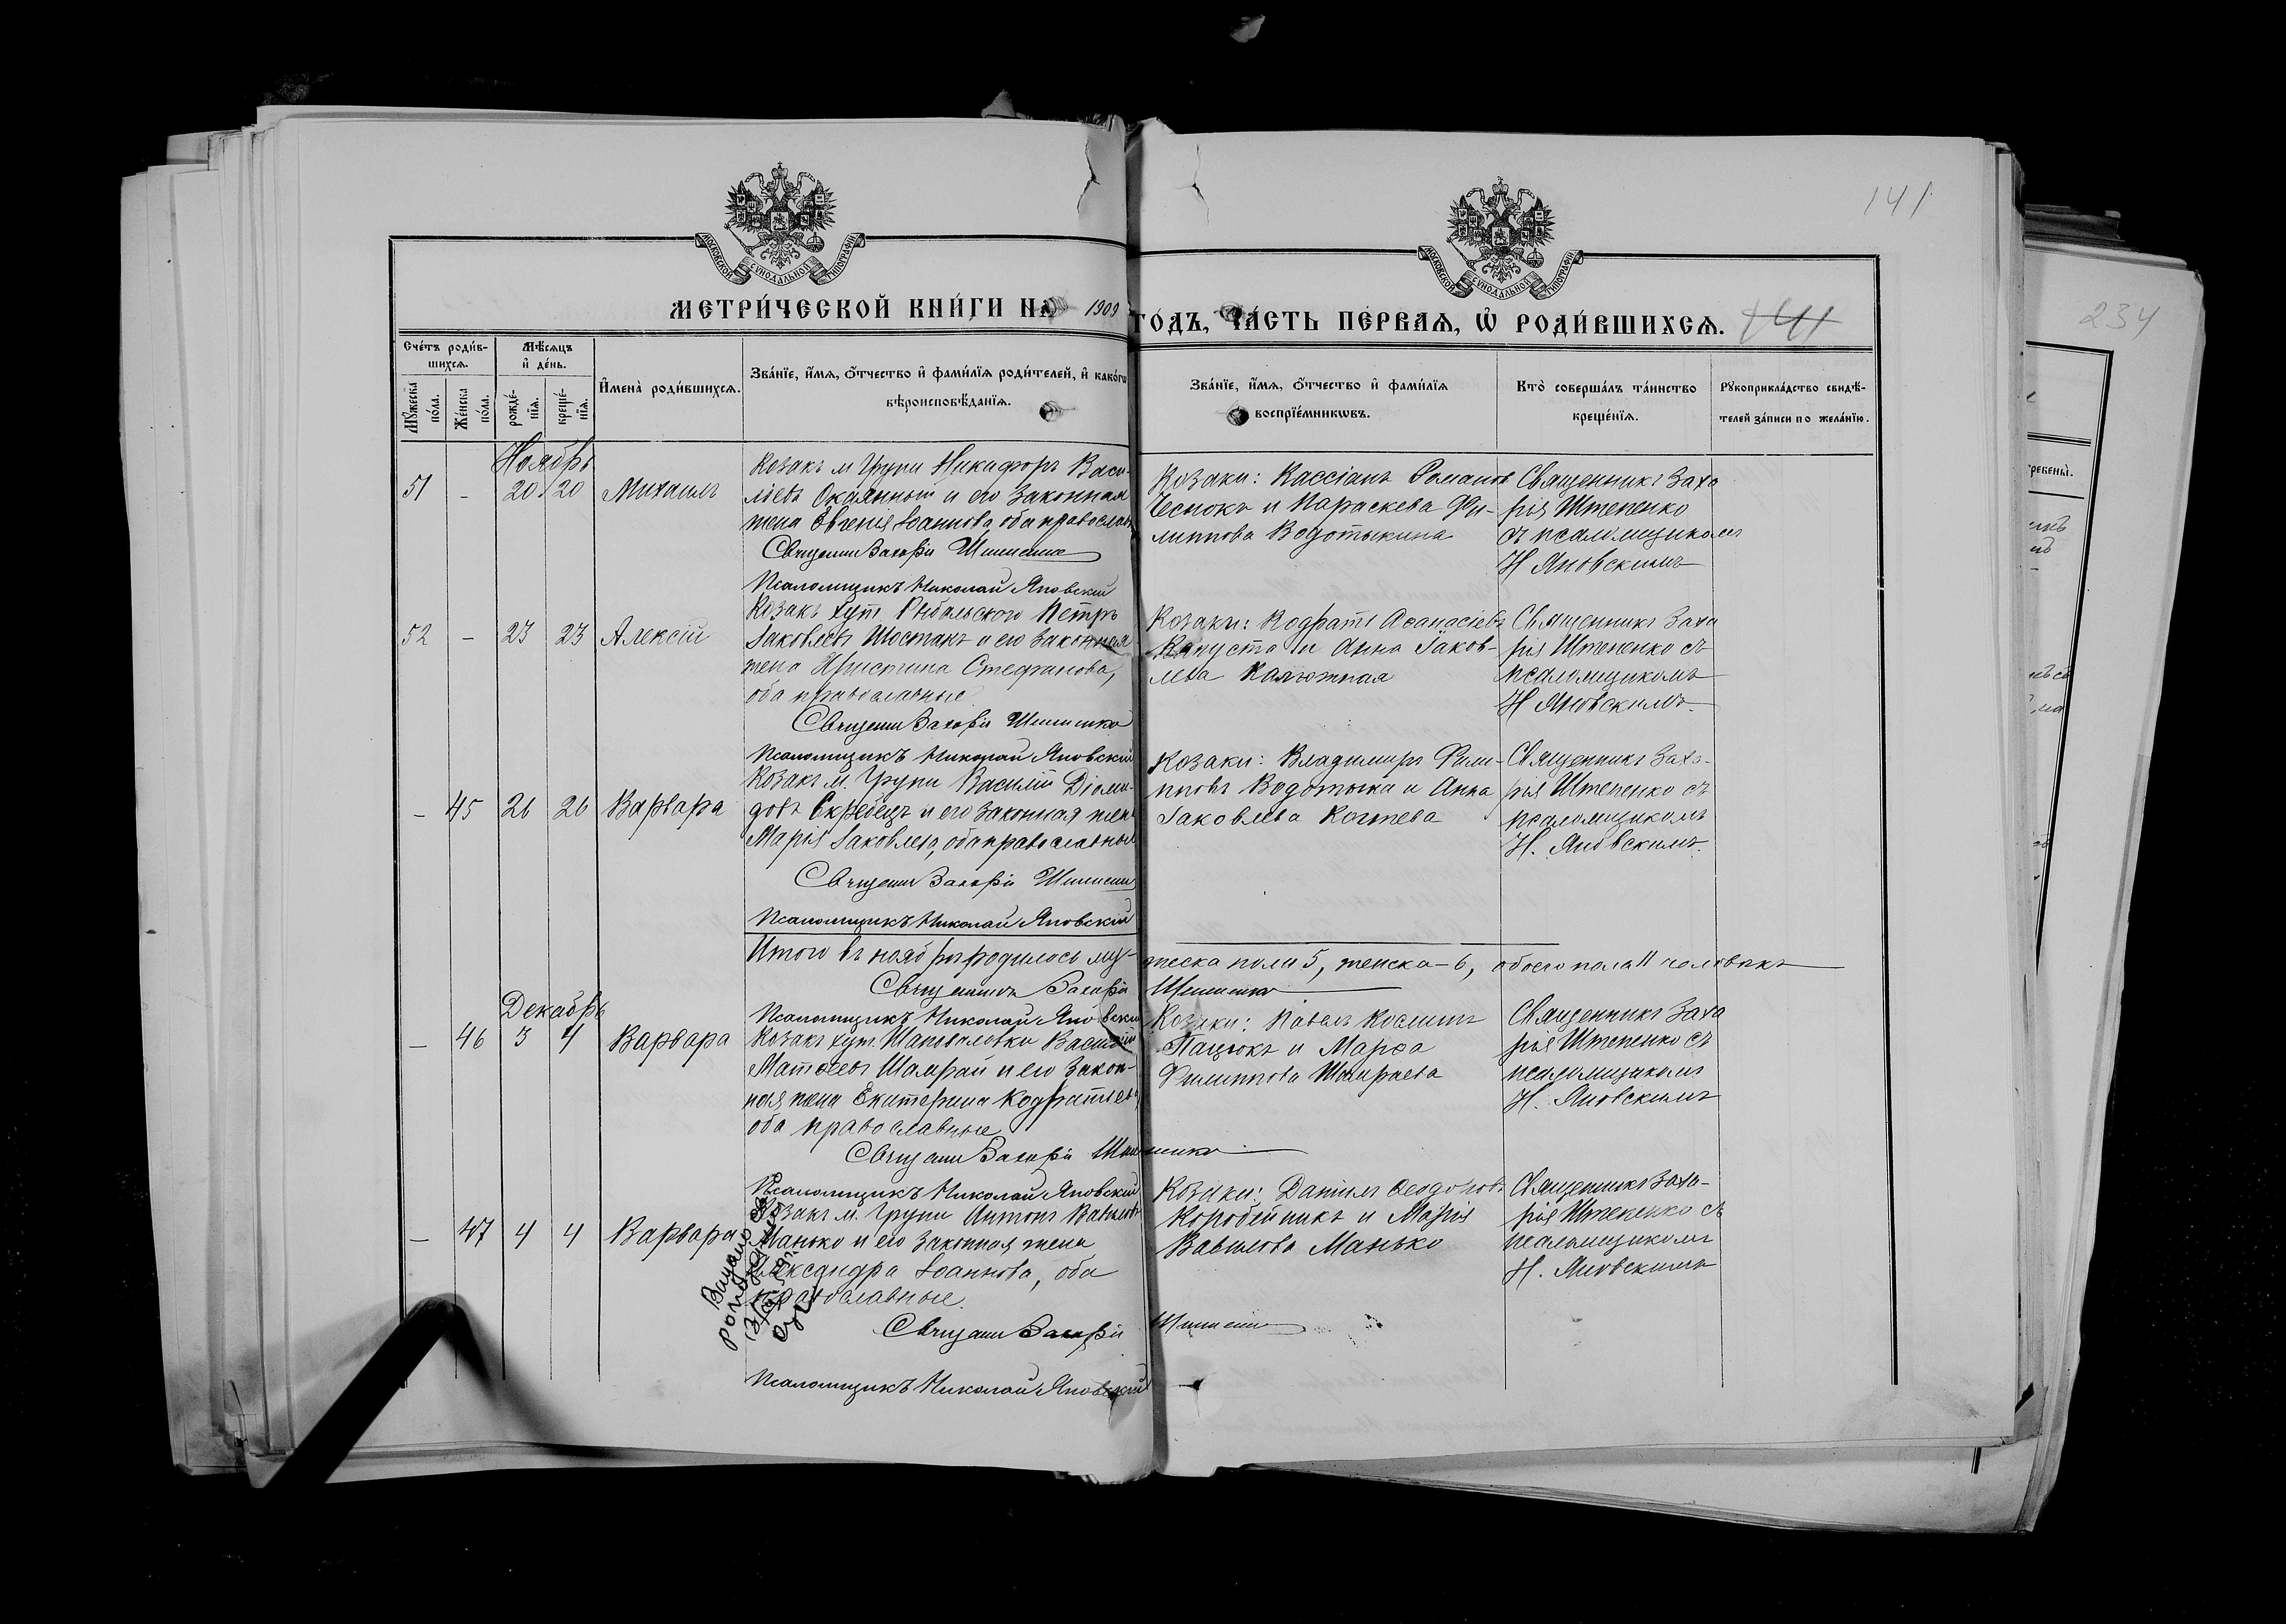 141
МОСКОВСКОЙ СУНОДАЛЬНОЙ ТИПОГРАФІИ
МОСКОВСКОЙ СУНОДАЛЬНОЙ ТИПОГРАФІИ
МЕТРИ́ЧЕСКОЙ КНИ́ГИ НА 1909 ГО́ДЪ, ЧА́СТЬ ПЕ́РВАѦ, Ѡ҆ РОДИ́ВШИХСѦ. 141
234
Сче́тъ роди́в-
шихсѧ.
Мꙋ́жеска по́ла.
Же́нска по́ла.
Мѣ́сѧцъ
и҆ де́нь.
рожде́-
нїѧ.
креще́-
нїѧ.
И҆мена̀ роди́вшихсѧ.
Зва́нїе, и҆́мѧ, ѻ҆́тчество и҆ фами́лїѧ роди́телей, и҆ како́гѡ
вѣроисповѣ́данїѧ.
Зва́нїе, и҆́мѧ, ѻ҆́тчество и҆ фами́лїѧ
воспрїе́мникѡвъ.
Кто̀ соверша́лъ та́инство
креще́нїѧ.
Рꙋкоприкла́дство свидѣ́-
телей за́писи по жела́нїю.
Ноябрь
51 - 20 20 Михаилъ
Козакъ м Груни Никифоръ Васи-
льевъ Окаянный и его законная
жена Евгенія Іоаннова, оба православн
Священ Захарій Штепенко
Псаломщикъ Николай Яновскій
Козаки: Кассіанъ Романов
Чеснокъ и Параскева Фи-
липпова Водотыкина
Священникъ Заха
рія Штепенко
съ псаломщикомъ
Н Яновскимъ
52 - 23 23 Алексій
Козакъ хут Рыбальского Петръ
Іаковлевъ Шостакъ и его законная
жена Христина Стефанова,
оба православные
Священ Захарій Штепенко
Псаломщикъ Николай Яновскій
Козаки: Кодратъ Аѳанасіевъ
Капуста и Анна Іаков-
лева Калюжная
Священникъ Заха
рія Штепенко съ
псаломщикомъ
Н Яновскимъ
- 45 26 26 Варвара
Козакъ м. Груни Василій Діоми-
довъ Скребецъ и его законная жена
Марія Іаковлева, оба православные
Священ Захарій Штепенко
Псаломщикъ Николай Яновскій
Козаки: Владимиръ Фили-
пповъ Водотыка и Анна
Іаковлева Когтева
Священникъ Заха-
рія Штепенко съ
псаломщикомъ
Н. Яновскимъ
Итого въ ноябрѣ родилось му-жеска пола 5, женска - 6, обоего пола 11 человѣкъ
Священникъ Захарій Штепенко
Псаломщикъ Николай Яновскій
Декабрь
- 46 3 4 Варвара
Козакъ хут. Шаповаловки Василій
Матѳеевъ Шамрай и его закон-
ная жена Екатерина Кодратьева
оба православные
Священ Захарій Штепенко
Псаломщикъ Николай Яновскій
Козаки: Павелъ Косминъ
Пацюкъ и Марѳа
Филиппова Шамраева
Священникъ Заха
рія Штепенко съ
псаломщикомъ
Н. Яновскимъ
- 47 4 4 Варвара
Козакъ м. Груни Антонъ Вавиловъ
Манько и его законная жена
Александра Іоаннова, оба
православные.
Священ Захарій Штепенко
Псаломщикъ Николай Яновскій
Козаки: Даніилъ Ѳеодоровъ
Коробейникъ и Марія
Вавилова Манько
Священникъ Заха-
рія Штепенко съ
псаломщикомъ
Н. Яновскимъ